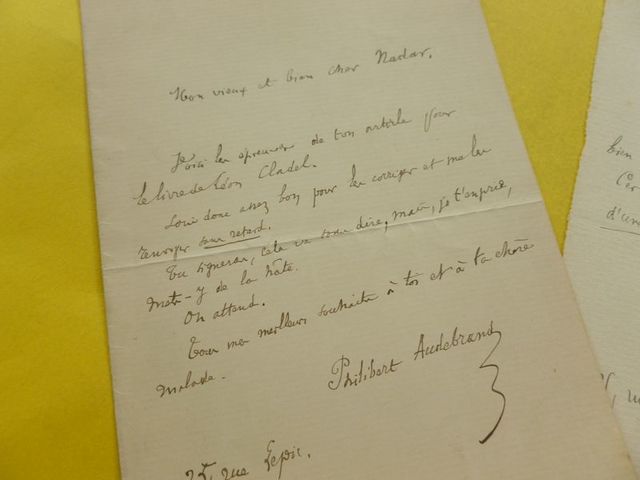 Mon vieux et bien cher Nadar,
Voici les épreuves de ton article pour
le livre de Léon Cladel.
Sois donc assez bon pour les corriger et me les
renvoyer sans retard.
Tu signeras, cela va sans dire, mais, je t'en prie,
mets-y de la hâte.
On attend.
Tous mes meilleurs souhaits à toi et à ta chère
malade.
Philibert Audebrand
25, rue Lepic.
bien
d'un